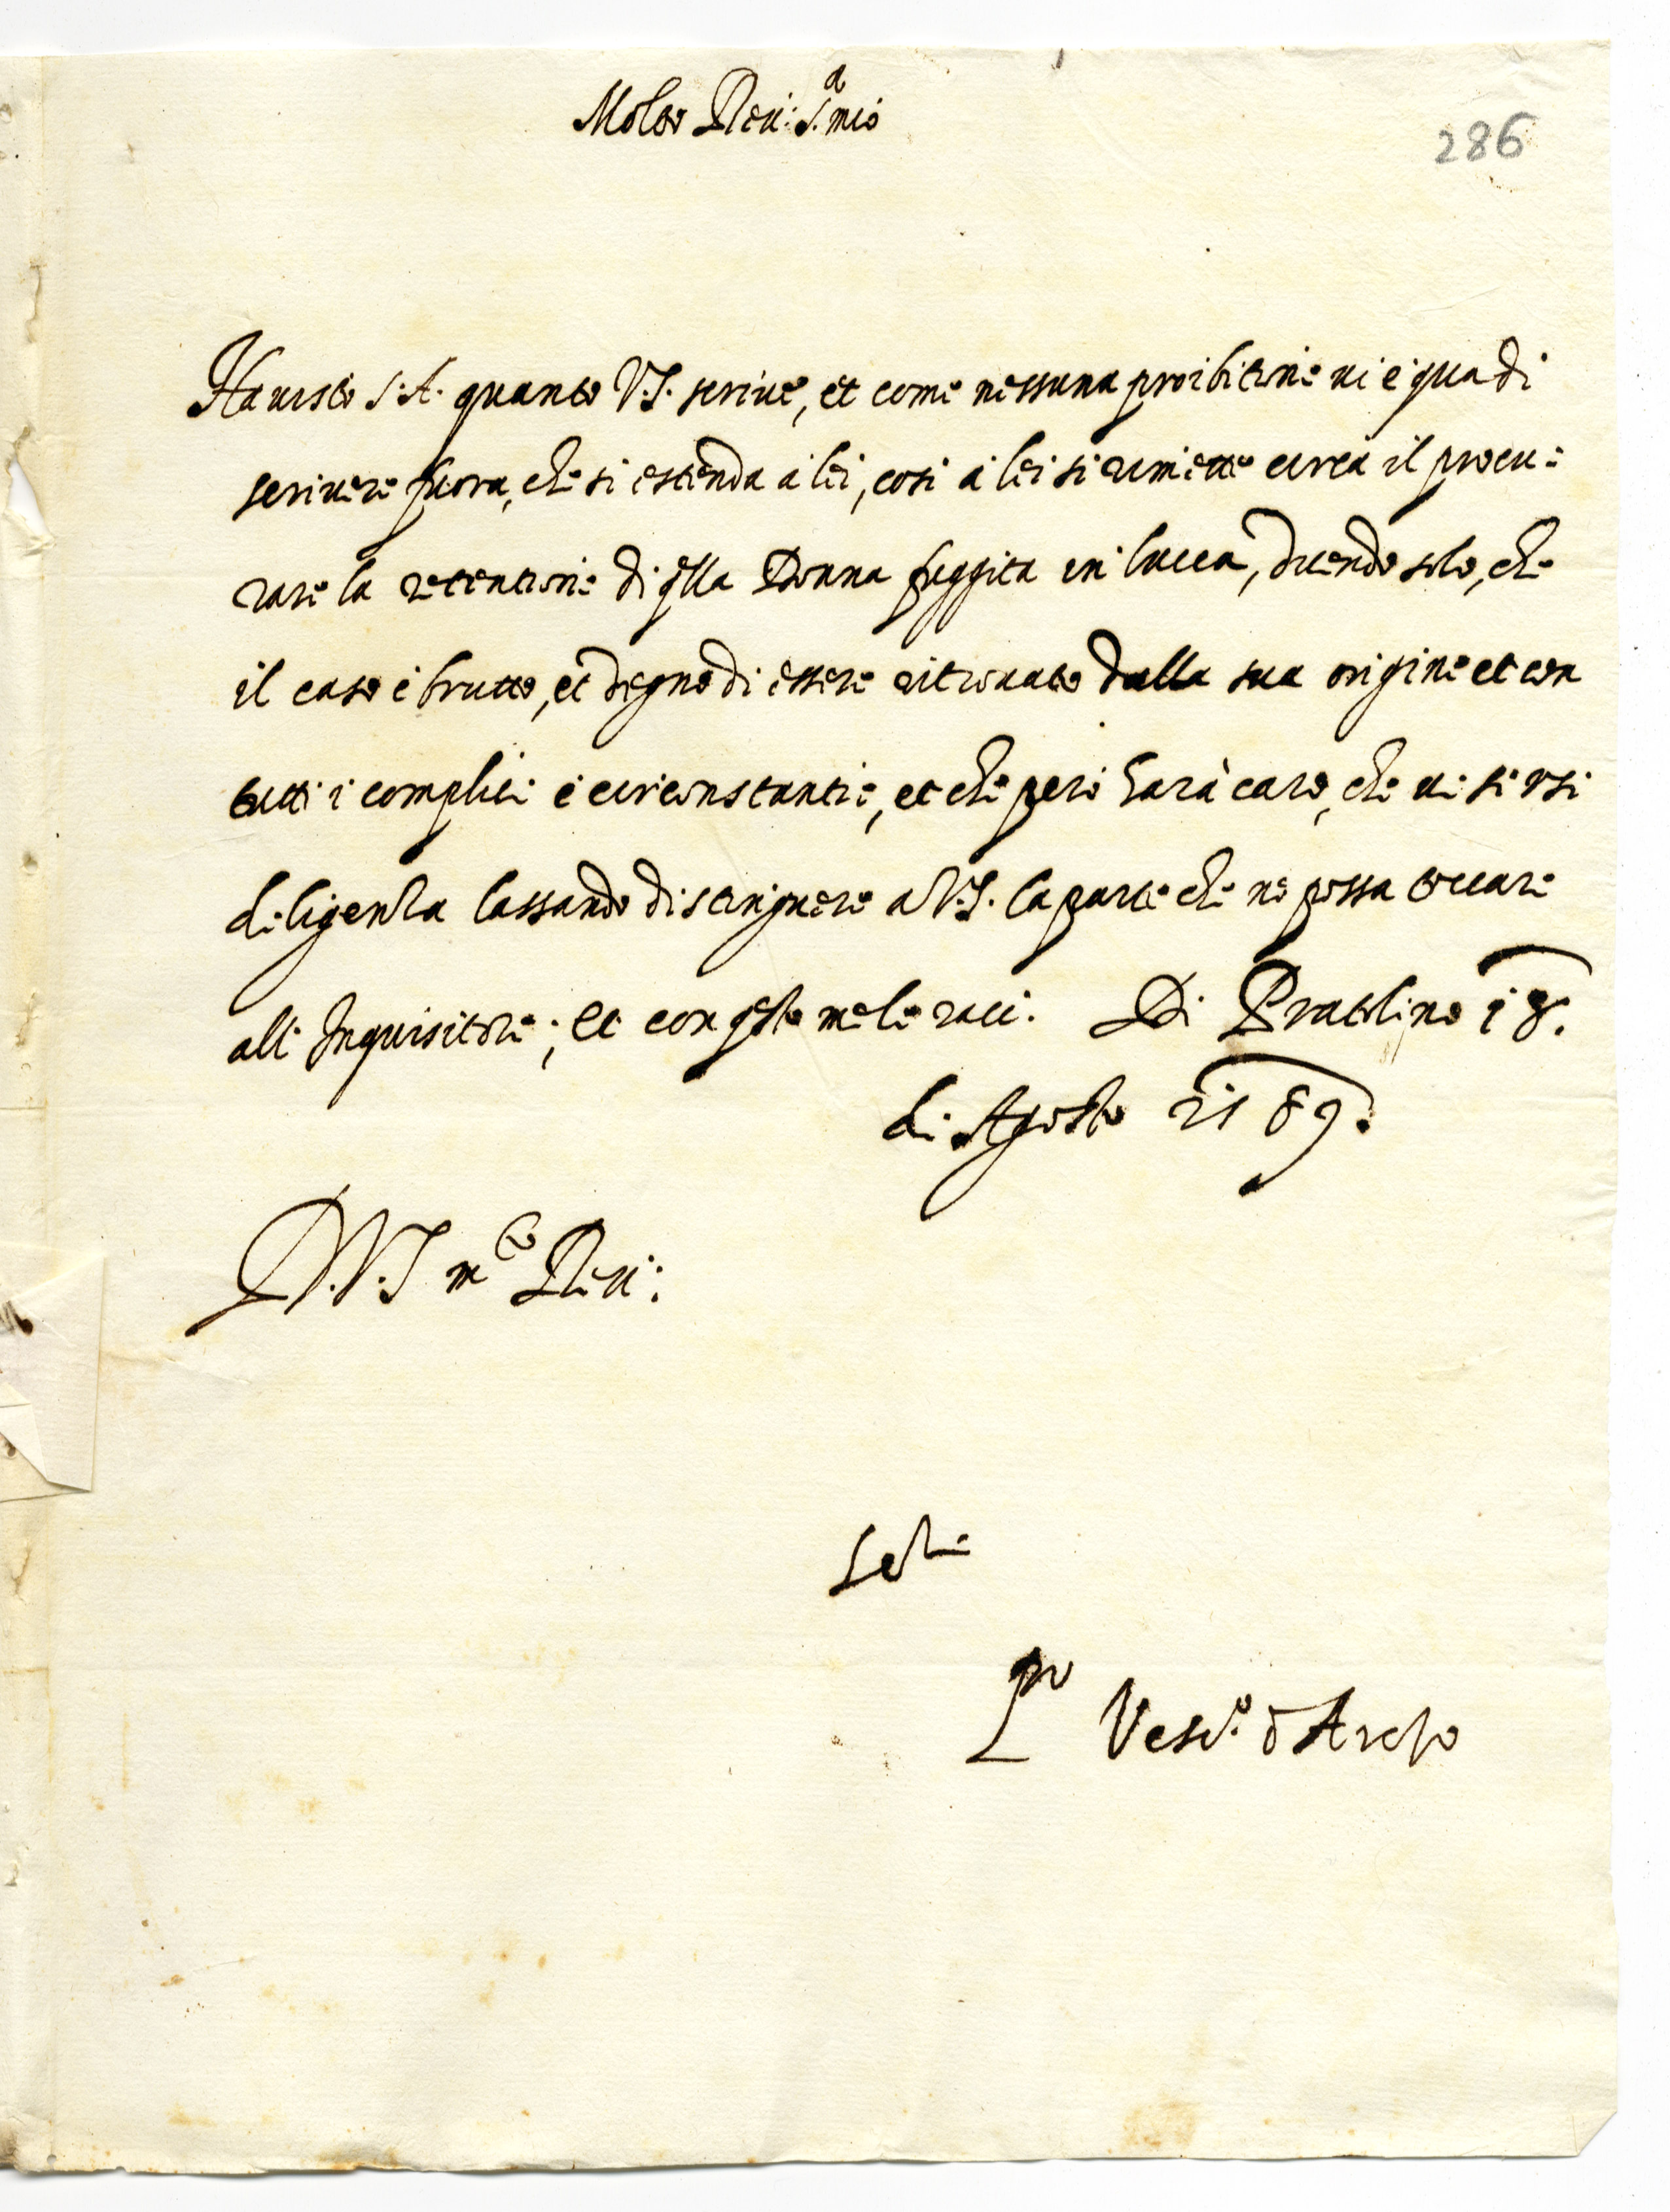 Molto Rev: S.r mio
286
Ha visto S.A. quanto V.S. scrive, et come nessuna proibitione vi è qua di
scrivere fuora, che si estenda à lei, così à lei si rimette circa il procu=
rare la retentione di q̃lla Donna fuggita in lucca, dicendo solo, che
il caso è brutto, et degno di essere ritrovato dalla sua origine et con
tutti i complici e circonstantie, et che però harà caro, che vi si usi
diligenza lassando distinguere a V.S. la parte che ne possa toccare
all Inquisitore; Et con q̃sto me le racc. Di Pratolino 18.
di Agosto 1589.
D.V.S m.to Rev:
Vesc.o d Arezo